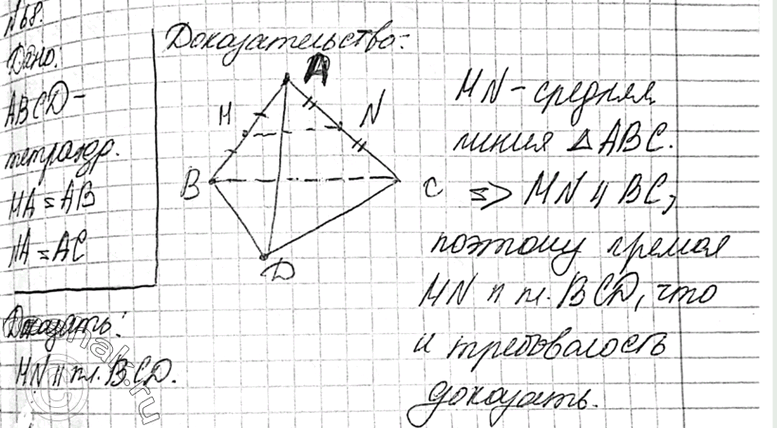 №68.
Дано:
ABCD -
тетраэдр.
MA = AB
NA = AC
Доказать:
MN || пл. BCD.
Доказательство:
A
M
N
B
C
D
MN - средняя
линия △ABC.
=> MN || BC,
поэтому прямая
MN || пл. BCD, что
и требовалось
доказать.